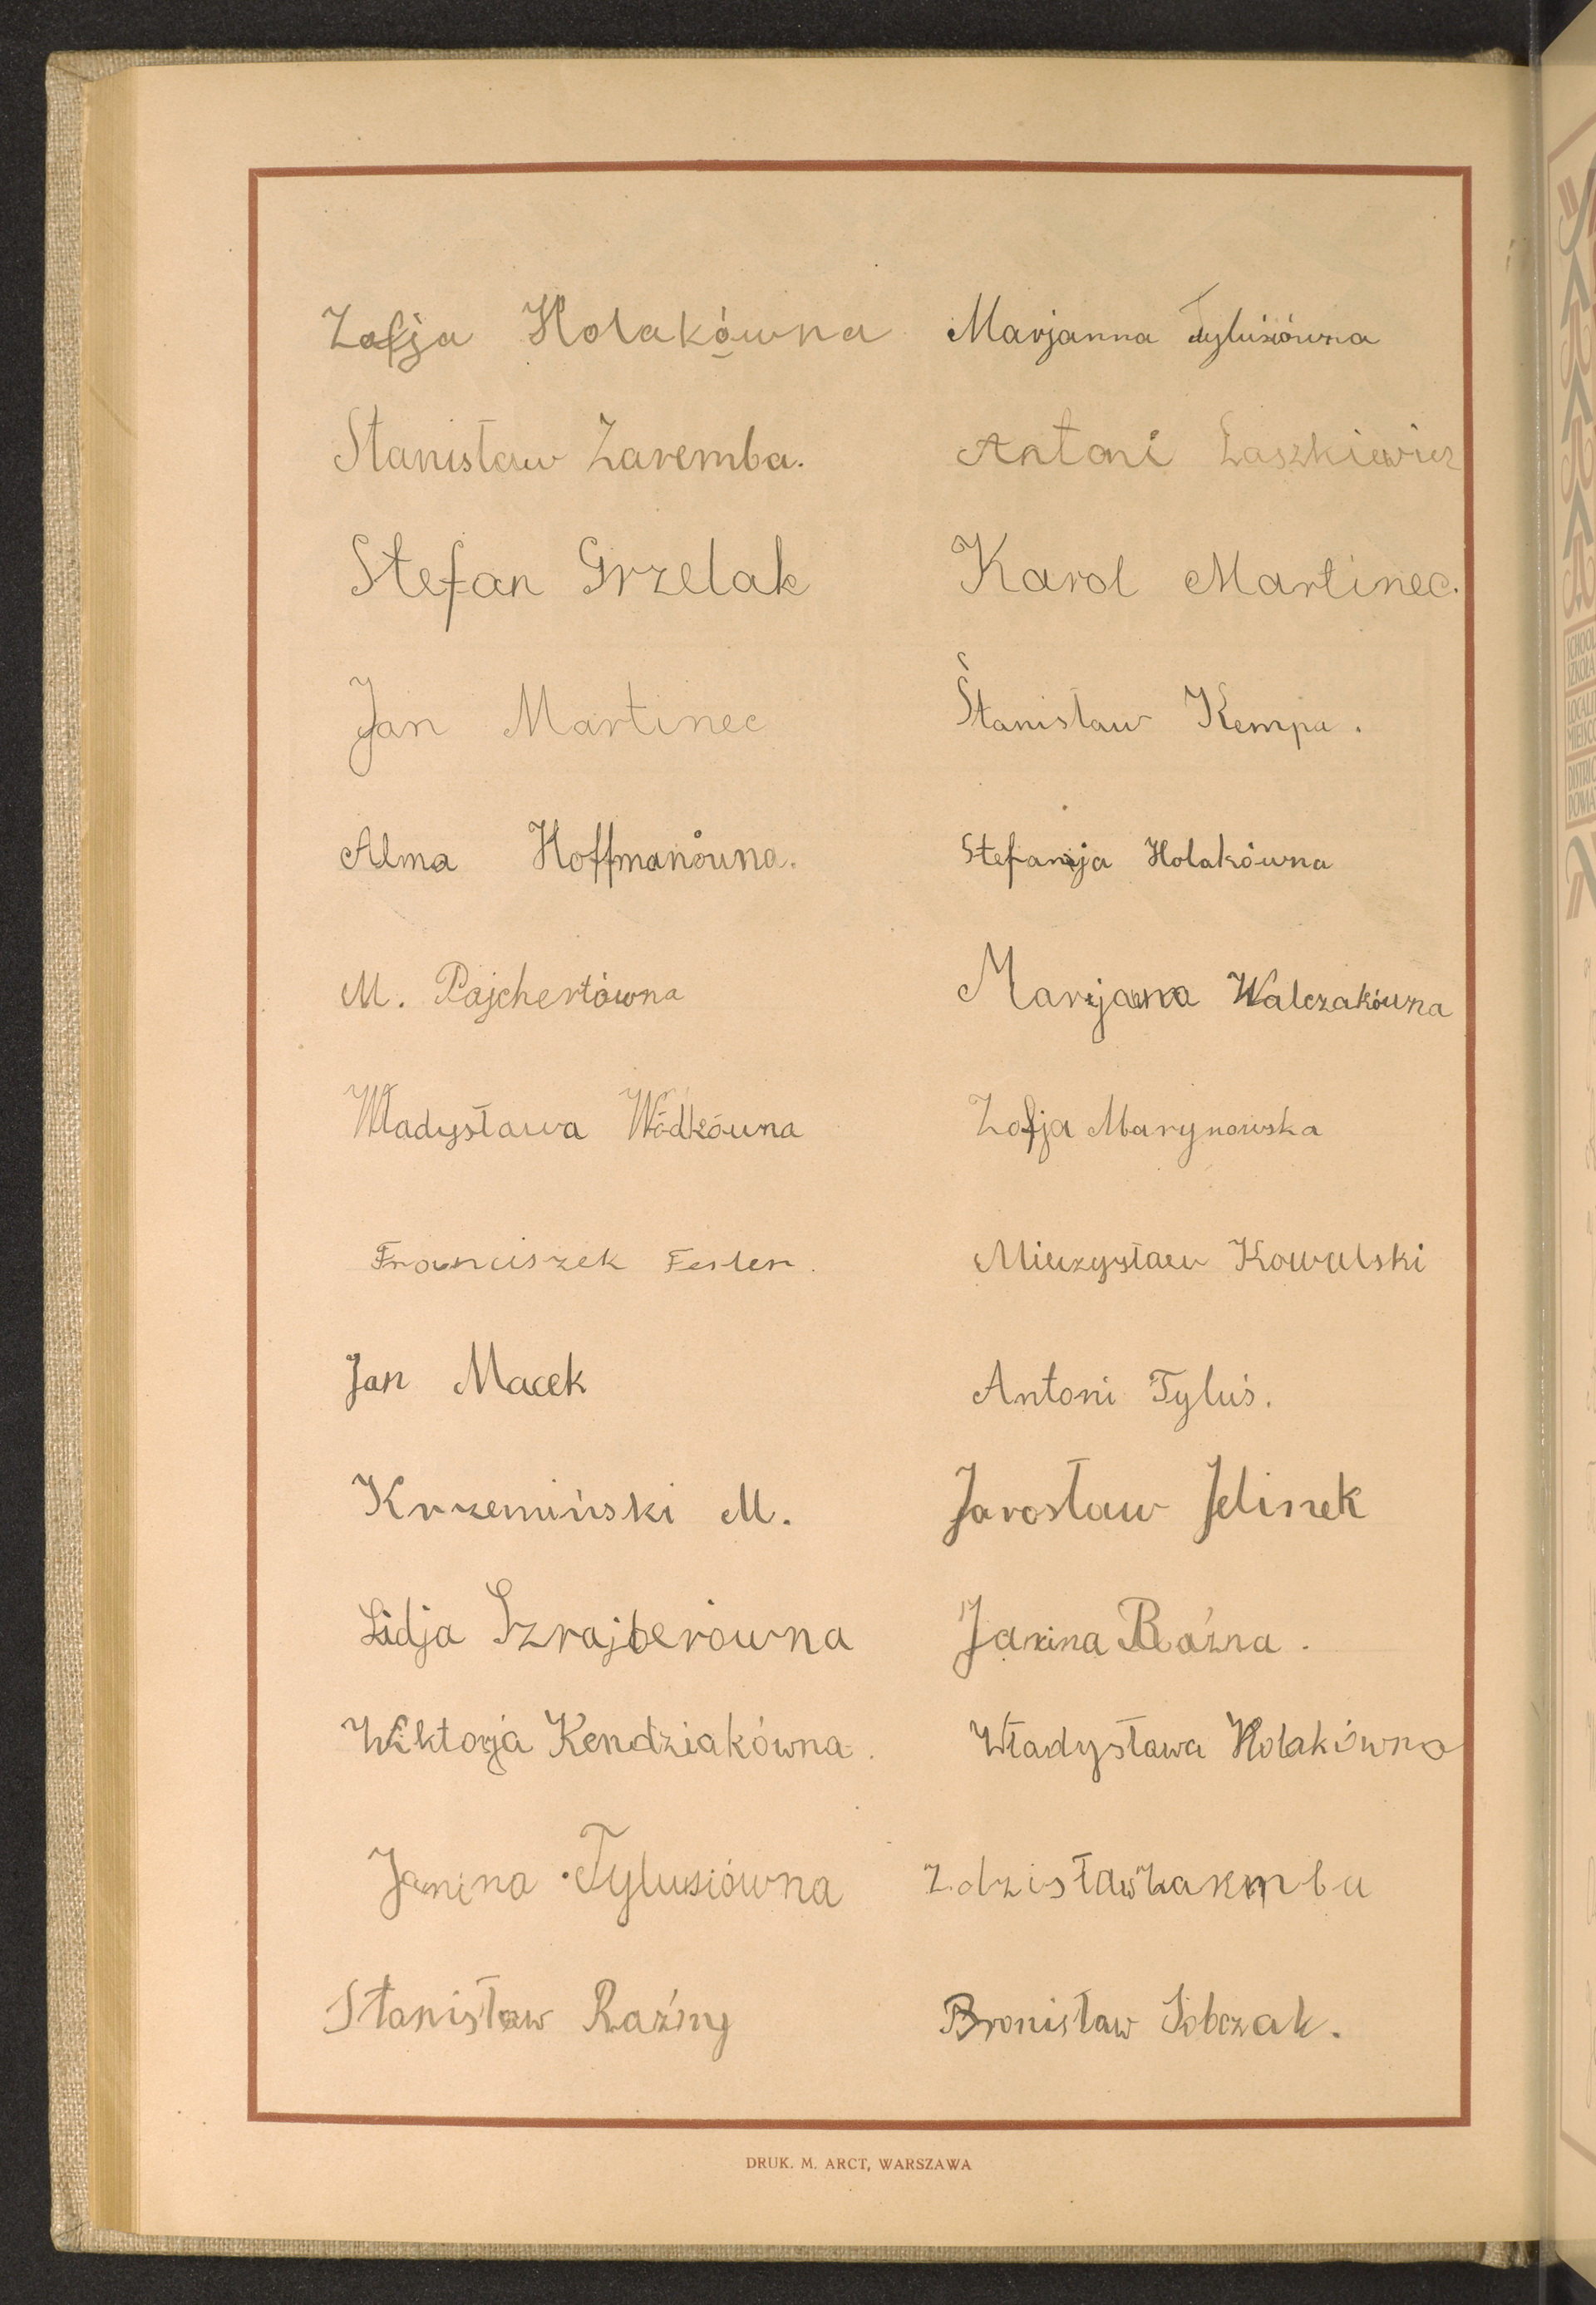 Zofja Holakówna
Stanisław Zaremba.
Stefan Grzelak
Jan Martinec
Alma Hoffmanówna.
M. Pajchertówna
Władysława Wódkówna
Franciszek Fesler.
Jan Macek
Krzemiński M.
Lidja Szrajberówna
Wiktorja Kendziakówna.
Janina Tylusiówna
Stanisław Raźny
Marjanna Tylusiówna
Antoni Łaszkiewicz
Karol Martinec.
Stanisław Kempa.
Stefanja Holakówna
Marjanna Walczakówna
Zofja Marynowska
Mieczysław Kowalski
Antoni Tyluś.
Jarosław Jelinek
Janina Raźna.
Władysława Holakówna
Zdzisław
Bronisław Sobczak.
DRUK. M. ARCT, WARSZAWA